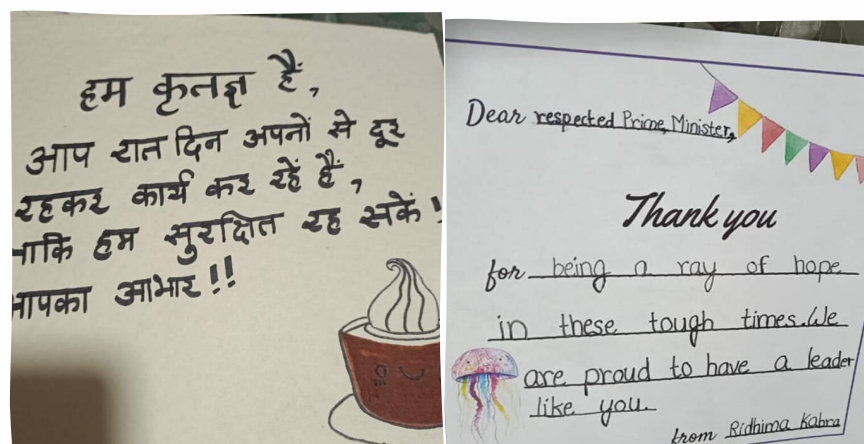 हम कृतज्ञ हैं,
आप रात दिन अपनों से दूर
रहकर कार्य कर रहें हैं,
ताकि हम सुरक्षित रह सकें!
आपका आभार!!
Dear respected Prime Minister,
Thank you
for being a ray of hope
in these tough times.We
are proud to have a leader
like you.
from Ridhima Kabra